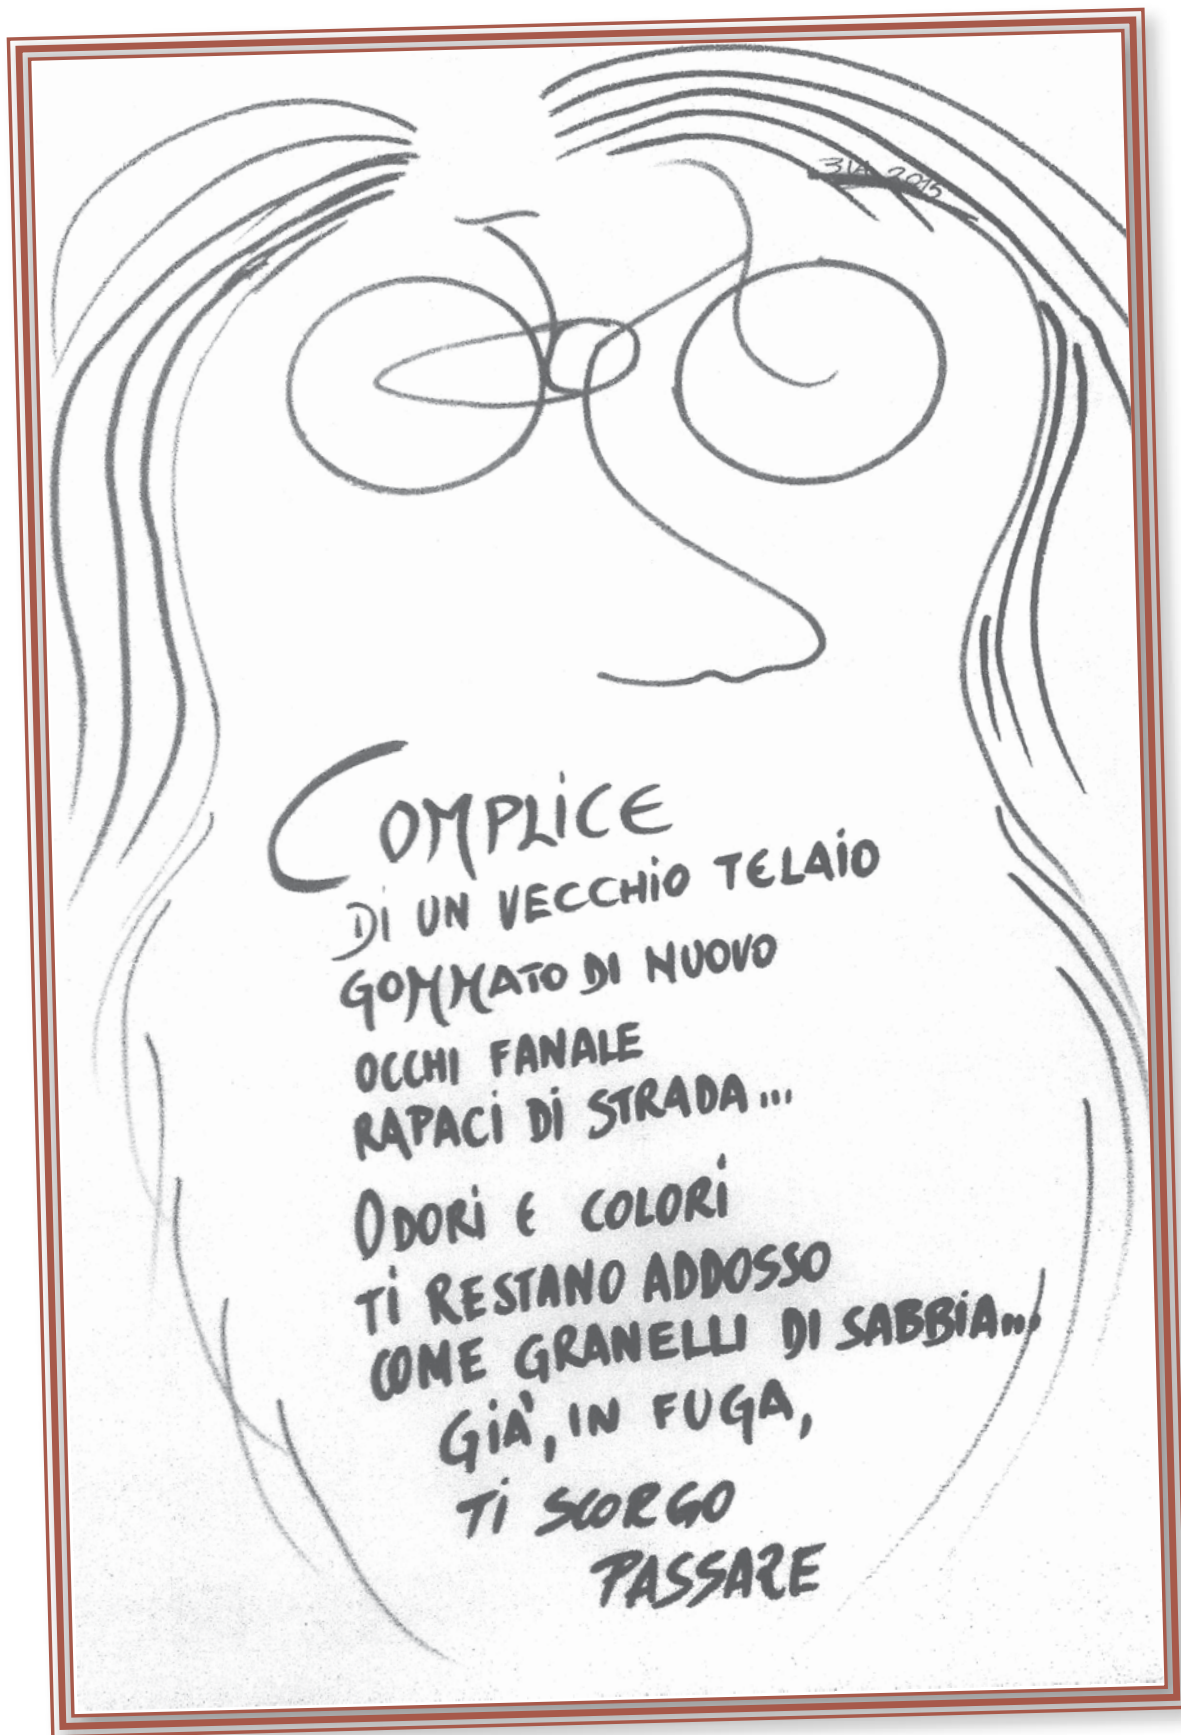 2015
COMPLICE
DI UN VECCHIO TELAIO
GOMMATO DI NUOVO
OCCHI FANALE
RAPACI DI STRADA...
ODORI E COLORI
TI RESTANO ADDOSSO
COME GRANELLI DI SABBIA...
GIÀ, IN FUGA,
TI SCORGO
PASSARE